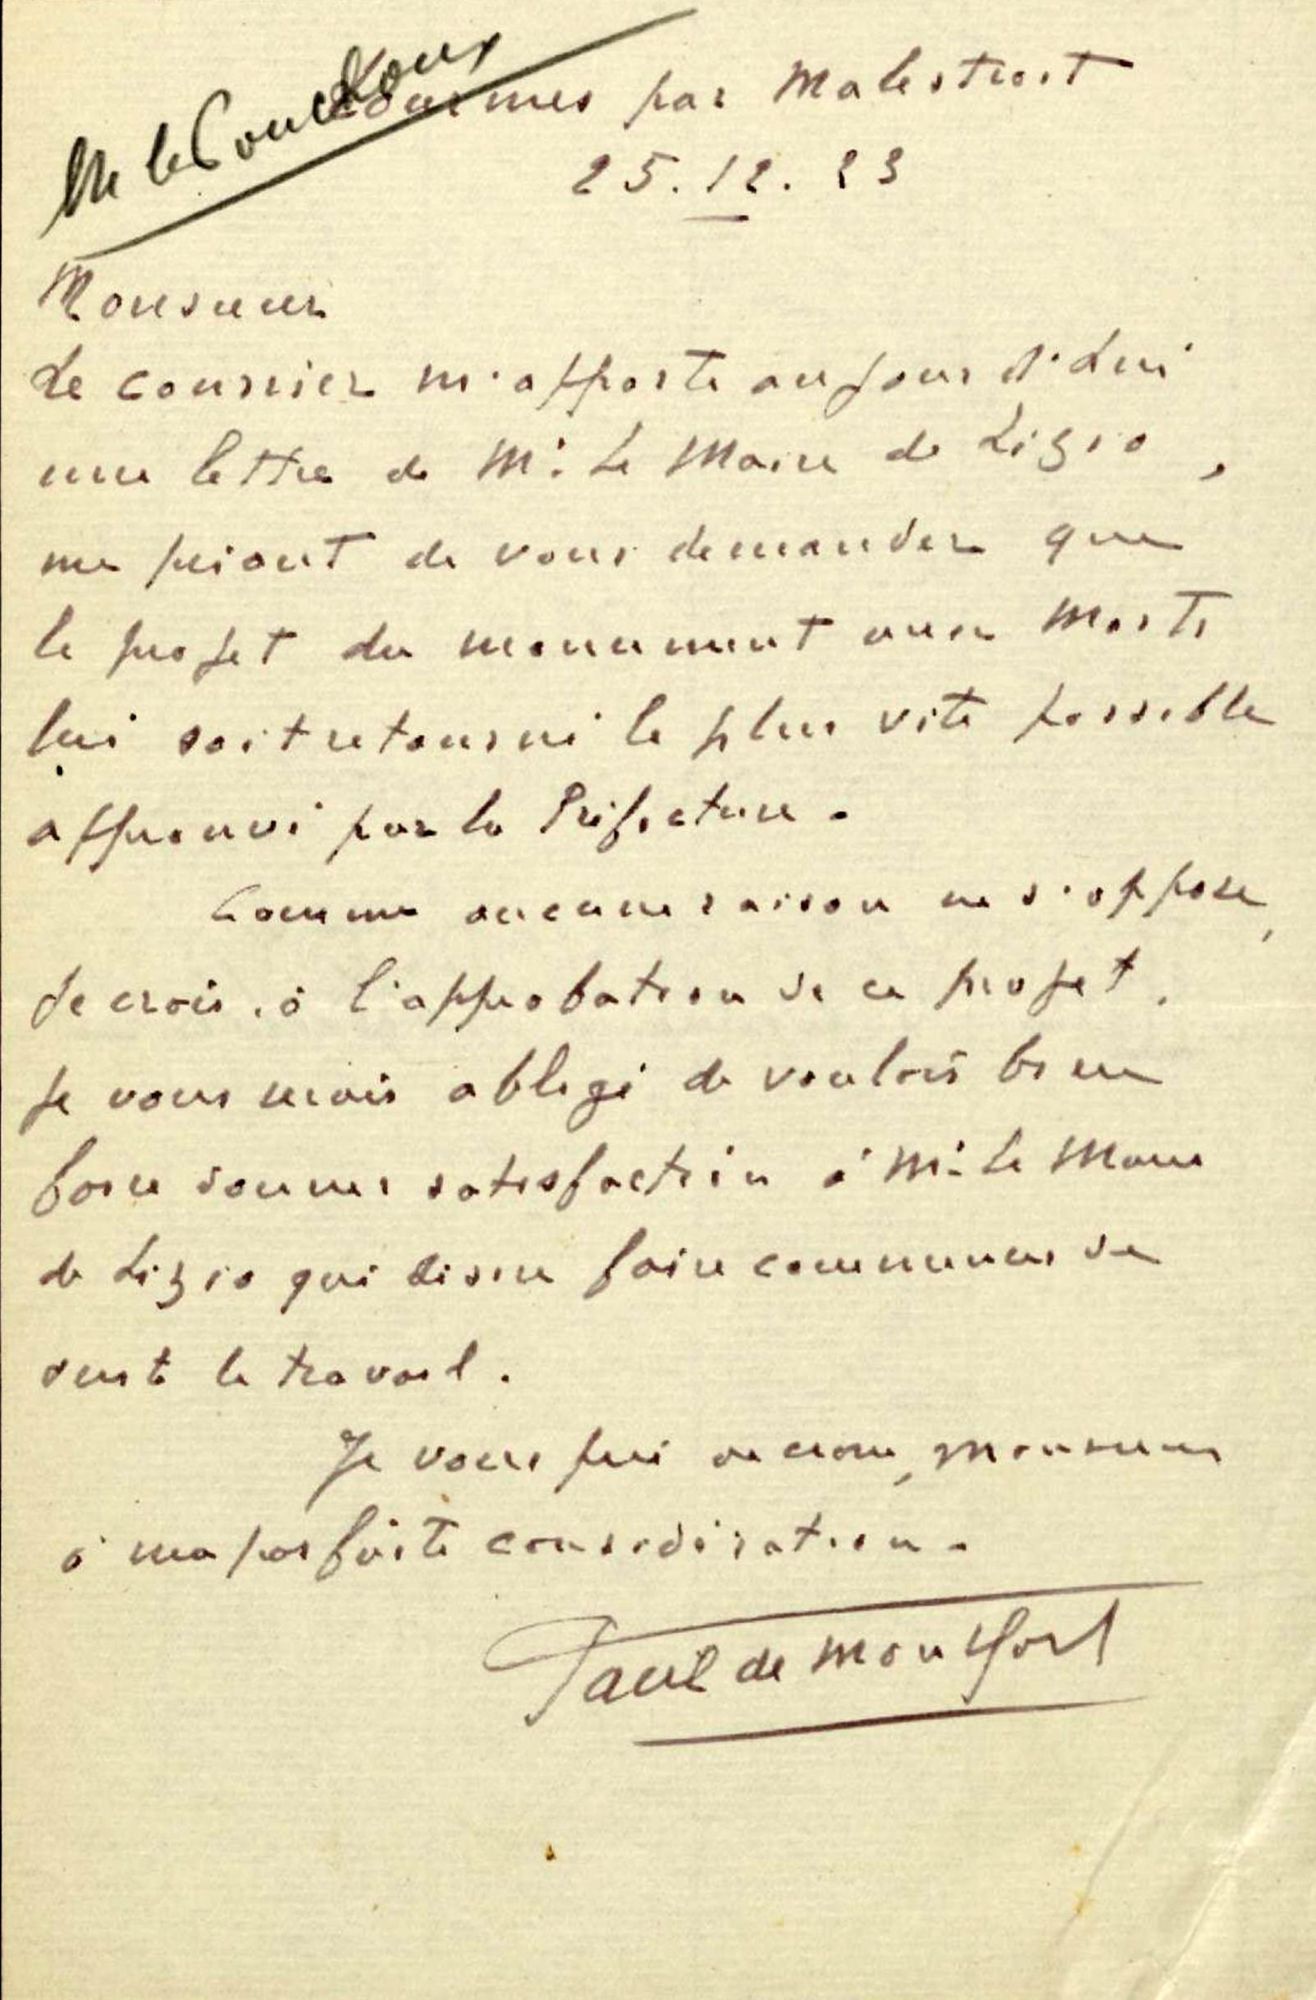 M. le
par Malestroit
25.12.23
Monsieur
Le courrier m'apporte aujourd'hui
une lettre de Mr Le Maire de Lizio,
me priant de vous demander que
le projet du monument aux Morts
lui soit retourné le plus vite possible
approuvé par la Préfecture.
Comme aucune raison ne s'oppose,
je crois, à l'approbation de ce projet,
je vous serais obligé de vouloir bien
faire donner satisfaction à Mr Le Maire
de Lizio qui désire faire commencer de
suite le travail.
Je vous prie de croire, Monsieur
à ma parfaite considération.
Paul de Montfort